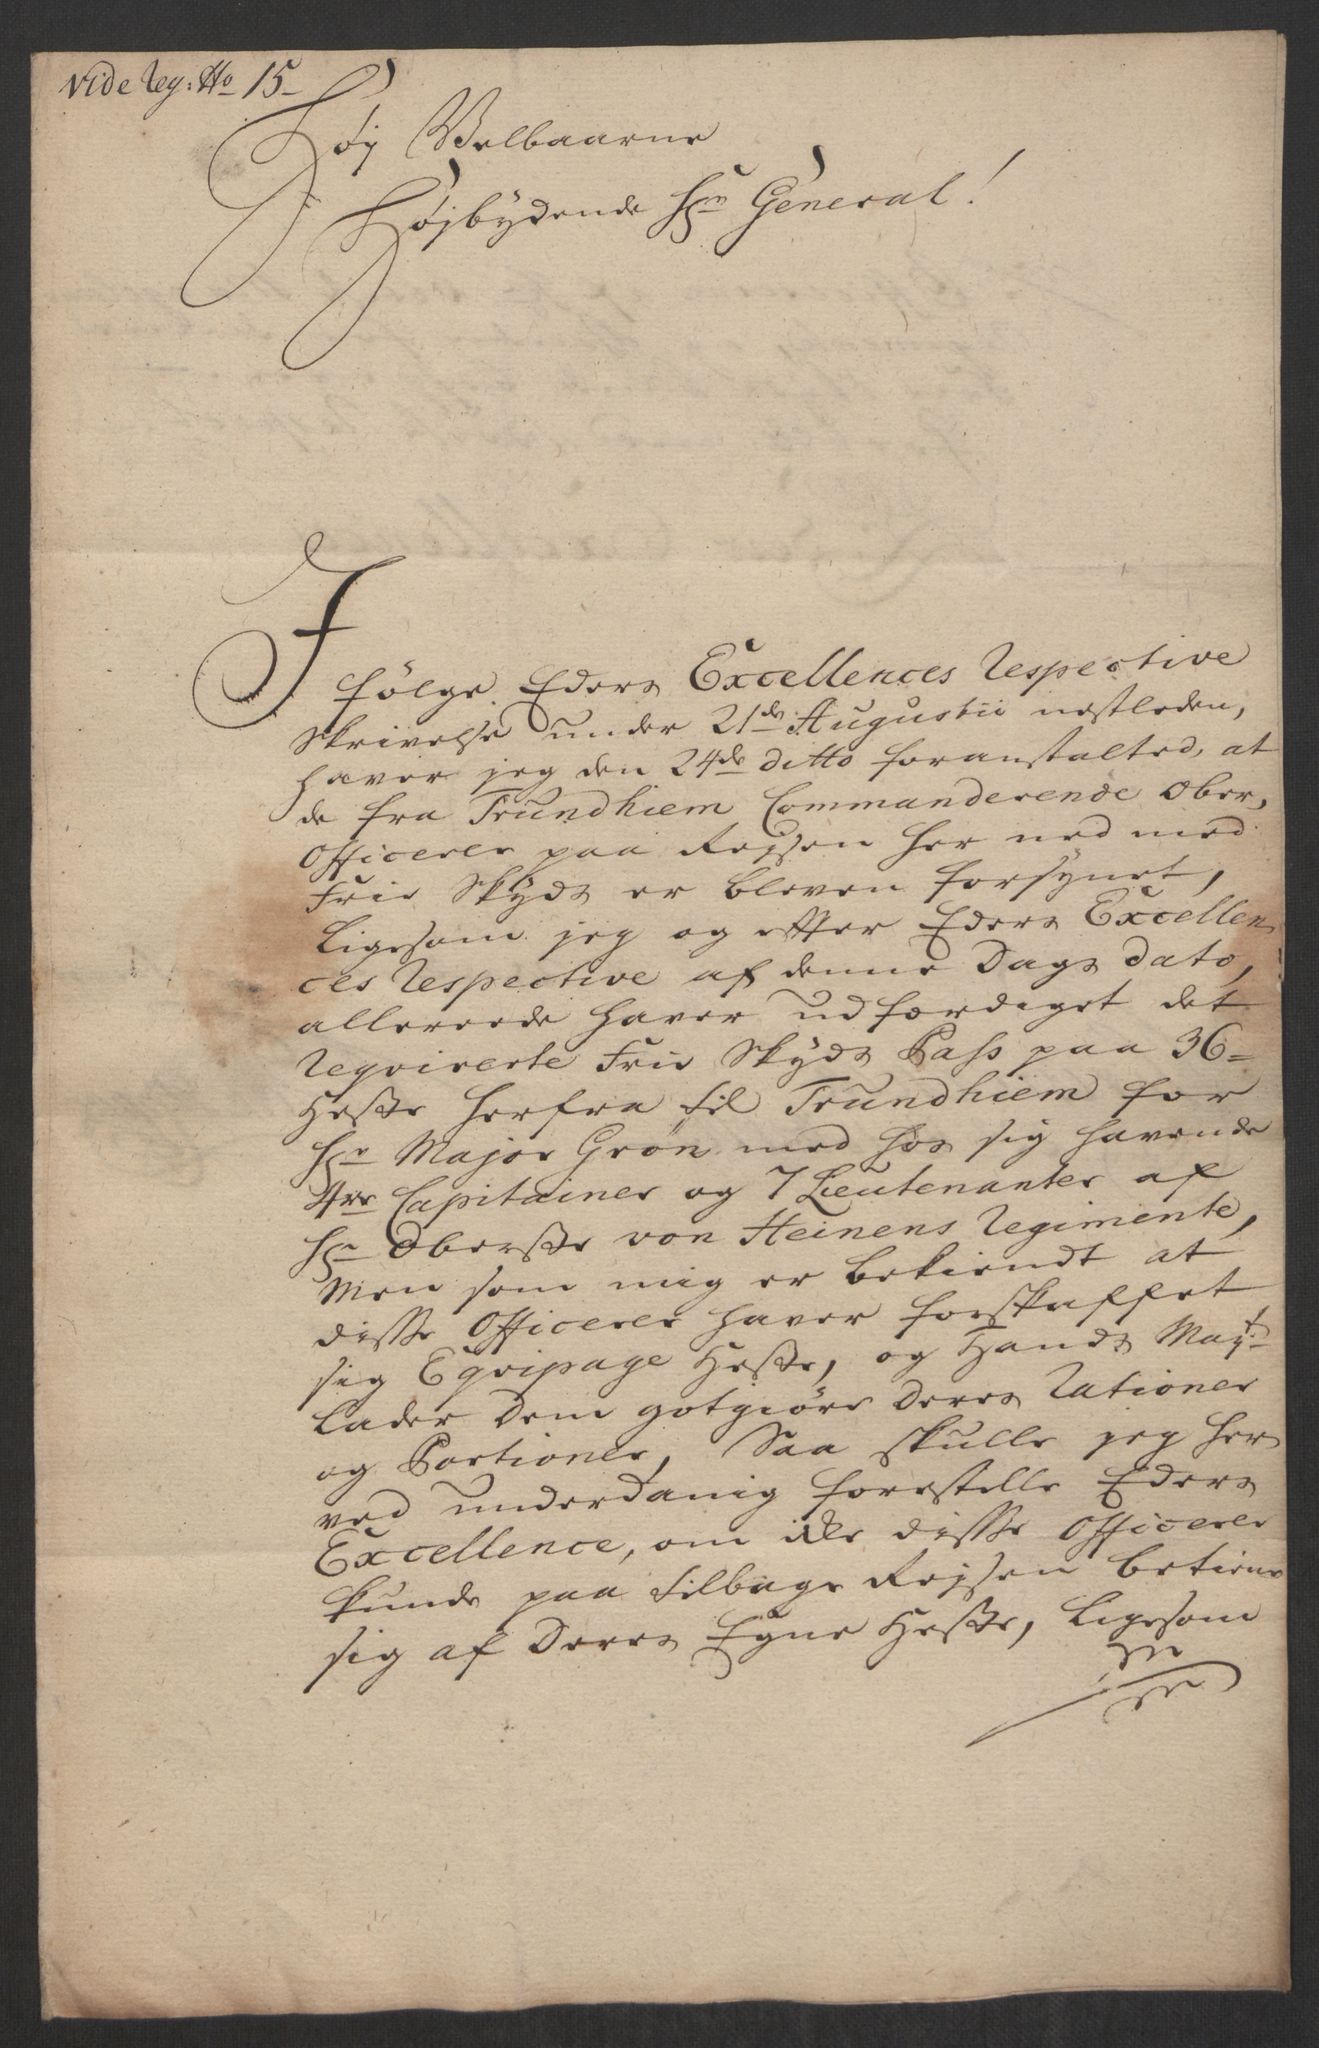 Vide Reg: No 15-
Høj Velbaarne
Højbydende Hr General!
I
følge Eders Excellences Respective
Skrivelse under 21de Augustii nestleden,
haver jeg den 24de ditto foranstalted, at
de fra Trundhiem Commanderende Ober,
Officerer paa Rejsen her ned med
Frie Skyds er bleven forsynet,
Ligesom jeg og efter Eders Excellen
ces Respective af denne Dags dato,
allereede haver udfærdiget det
Reqvirerte Frie Skyds Pass paa 36=
Heste herfra til Trundhiem for
Hr Major Grön med hos sig havende
4re Capitainer og 7 Lieutenanter af
Hr Oberste von Heinens Regimente,
Men som mig er bekiendt at
disse Officerer haver forskaffet
sig Eqvipage Heste, og Hands Mayt
lader Dem gotgiöre Deres Rationer
og Portioner, Saa skulle jeg her
ved underdanig forestille Eders
Excellence, om ikke disse Officerer
kunde paa tilbage Rejsen betiene
sig af Deres Egne Heste, Ligesom